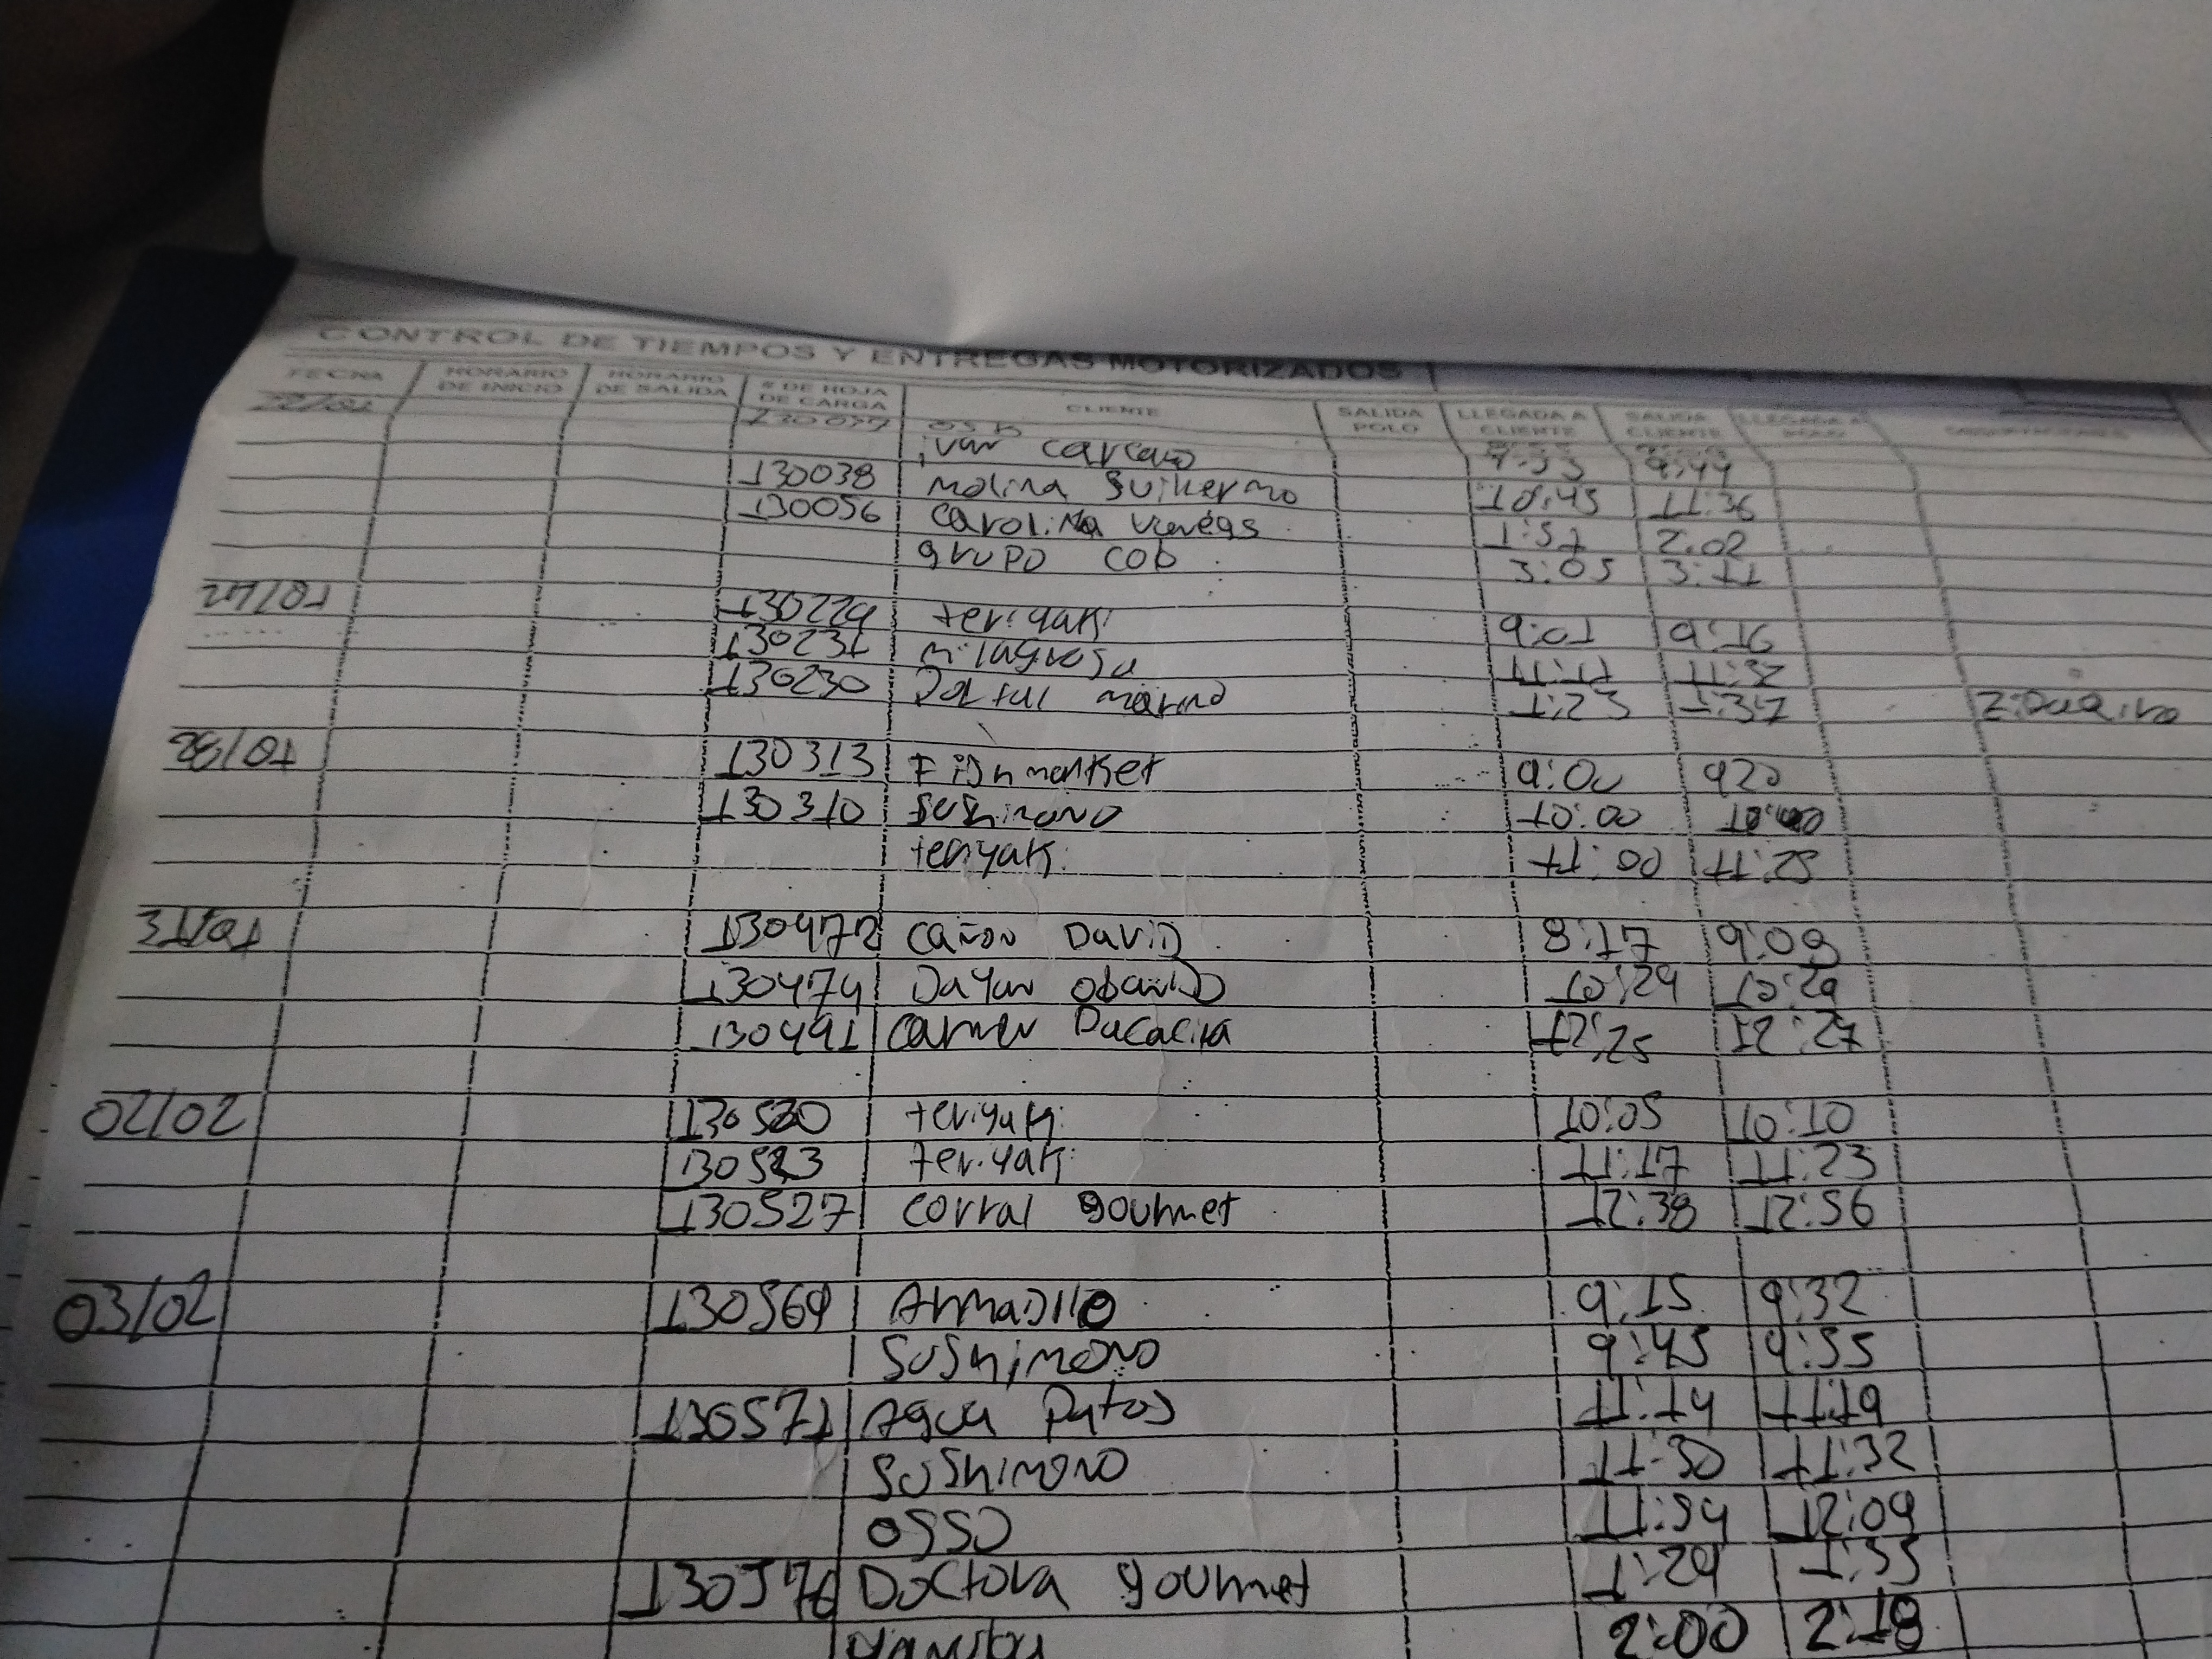 CONTROL DE TIEMPOS Y ENTREGAS MOTORIZADOS
FECHA HORARIO DE INICIO HORARIO DE SALIDA # DE HOJA DE CARGA CLIENTE SALIDA POLO LLEGADA A CLIENTE SALIDA CLIENTE LLEGADA A
ivan 9:44
130038 molina 10:45 11:36
130056 carolina 1:57 2:02
grupo cob 3:05 3:11
130229 teriyaki 9:01 9:16
130231 milagrosa 11:17 11:32
130230 1:23 1:37
28/01 130313 Fish market 9:00 920
130310 Sushimono 10:00
teriyaki 11:00 11:25
31/01 130472 cañon DaviD 8:17 9:09
130474 Dayan obanDo 10:24 10:29
130491 carmen 12:25 12:27
02/02 130520 teriyaki 10:05 10:10
teriyaki 11:17 11:23
130527 corral gourmet 12:38 12:56
03/02 130569 ArmaDillo 9:15 9:32
Sushimono 9:45 9:55
130571 Agua Patos 11:14 11:19
Sushimono 11:30 11:32
osso 11:54 12:09
130576 Doctora gourmet 1:29 1:35
2:00 2:18